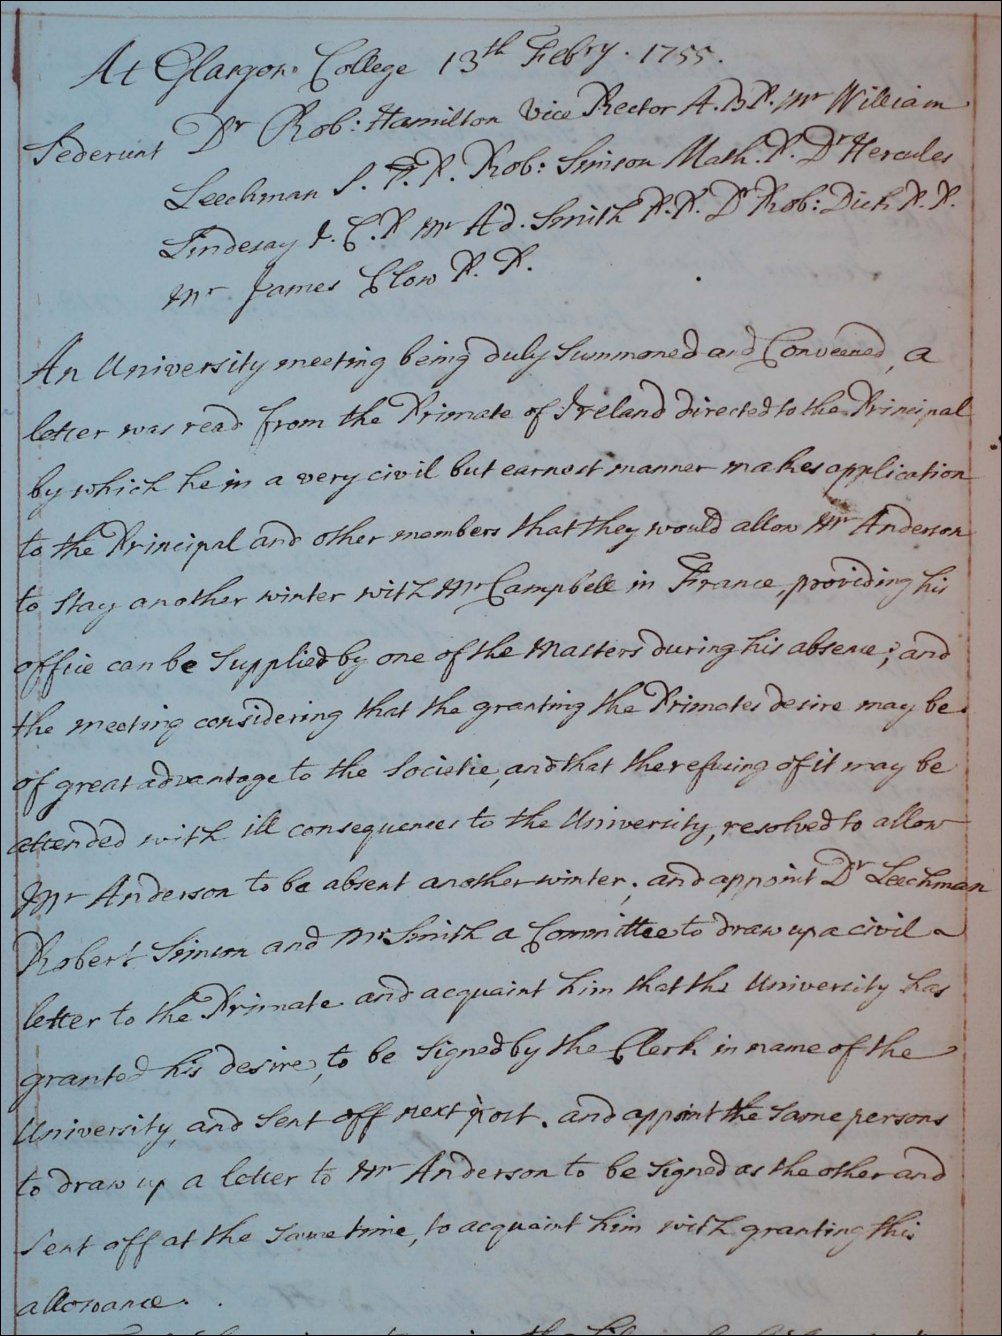 At Glasgow College 13th Febry. 1755.
Sederunt Dr Rob: Hamilton Vice Rector A. B. P. Mr William
Leechman S. T. P. Rob: Simson Math. P. Dr Hercules
Lindesay J. C. P. Mr Ad. Smith P. P. Dr Rob: Dick P. P.
Mr James Clow P. P.
An University meeting being duly Summoned and Conveened, a
letter was read from the Primate of Ireland directed to the Principal
by which he in a very civil but earnest manner makes application
to the Principal and other members that they would allow Mr Anderson
to stay another winter with Mr Campbell in France, providing his
office can be Supplied by one of the Masters during his absence; and
the meeting considering that the granting the Primates desire may be
of great advantage to the Societie, and that the refusing of it may be
attended with ill consequences to the University, resolved to allow
Mr Anderson to be absent another winter; and appoint Dr Leechman
Robert Simson and Mr Smith a Committee to draw up a civil
letter to the Primate and acquaint him that the University has
granted his desire, to be Signed by the Clerk in name of the
University, and Sent off next post. and appoint the Same persons
to draw up a letter to Mr Anderson to be Signed as the other and
Sent off at the Same time, to acquaint him with granting this
allowance.